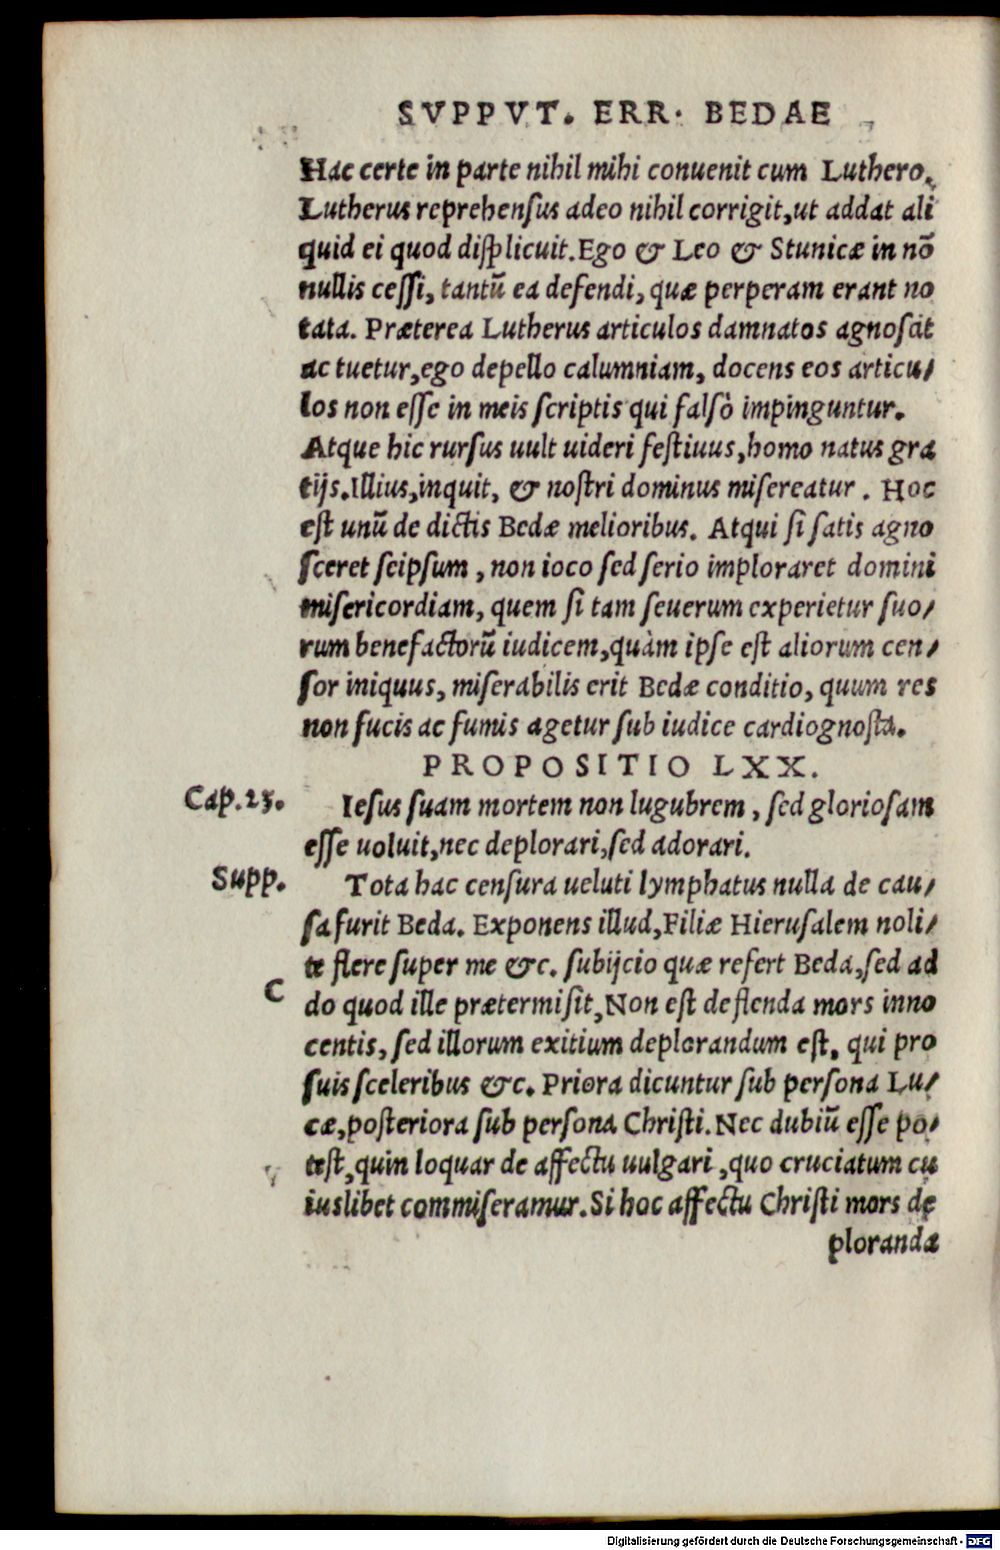 SVPPVT. ERR. BEDAE
Hac certe in parte nihil mihi conuenit cum Luthero.
Lutherus reprehensus adeo nihil corrigit, ut addat ali
quid ei quod displicuit. Ego & Leo & Stunicæ in nõ
nullis cessi, tantũ ea defendi, quæ perperam erant no
tata. Præterea Lutherus articulos damnatos agnoscit
ac tuetur, ego depello calumniam, docens eos articu/
los non esse in meis scriptis qui falsò impinguntur.
Atque hic rursus uult uideri festiuus, homo natus gra
tijs. Illius, inquit, & nostri dominus misereatur. Hoc
est unũ de dictis Bedæ melioribus. Atqui si satis agno
sceret seipsum, non ioco sed serio imploraret domini
misericordiam, quem si tam seuerum experietur suo/
rum benefactorũ iudicem, quàm ipse est aliorum cen/
sor iniquus, miserabilis erit Bedæ conditio, quum res
non fucis ac fumis agetur sub iudice cardiognosta.
PROPOSITIO LXX.
Cap. 23. Iesus suam mortem non lugubrem, sed gloriosam
esse uoluit, nec deplorari, sed adorari.
Supp. Tota hac censura ueluti lymphatus nulla de cau/
sa furit Beda. Exponens illud, Filiæ Hierusalem noli/
te flere super me &c. subijcio quæ refert Beda, sed ad
C do quod ille prætermisit, Non est deflenda mors inno
centis, sed illorum exitium deplorandum est, qui pro
suis sceleribus &c. Priora dicuntur sub persona Lu/
cæ, posteriora sub persona Christi. Nec dubiũ esse po/
test, quin loquar de affectu uulgari, quo cruciatum cu
iuslibet commiseramur. Si hoc affectu Christi mors de
ploranda
Digitalisierung gefördert durch die Deutsche Forschungsgemeinschaft - DFG